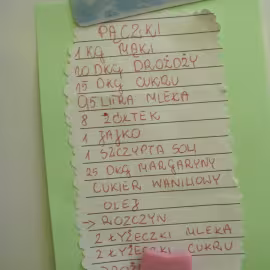 PĄCZKI
1 KG MĄKI
10 DKG DROŻDŻY
15 DKG CUKRU
0,5 LITRA MLEKA
8 ŻÓŁTEK
1 JAJKO
1 SZCZYPTA SOLI
25 DKG MARGARYNY
CUKIER WANILIOWY
OLEJ
→ ROZCZYN
2 ŁYŻECZKI MLEKA
2 ŁYŻECZKI CUKRU